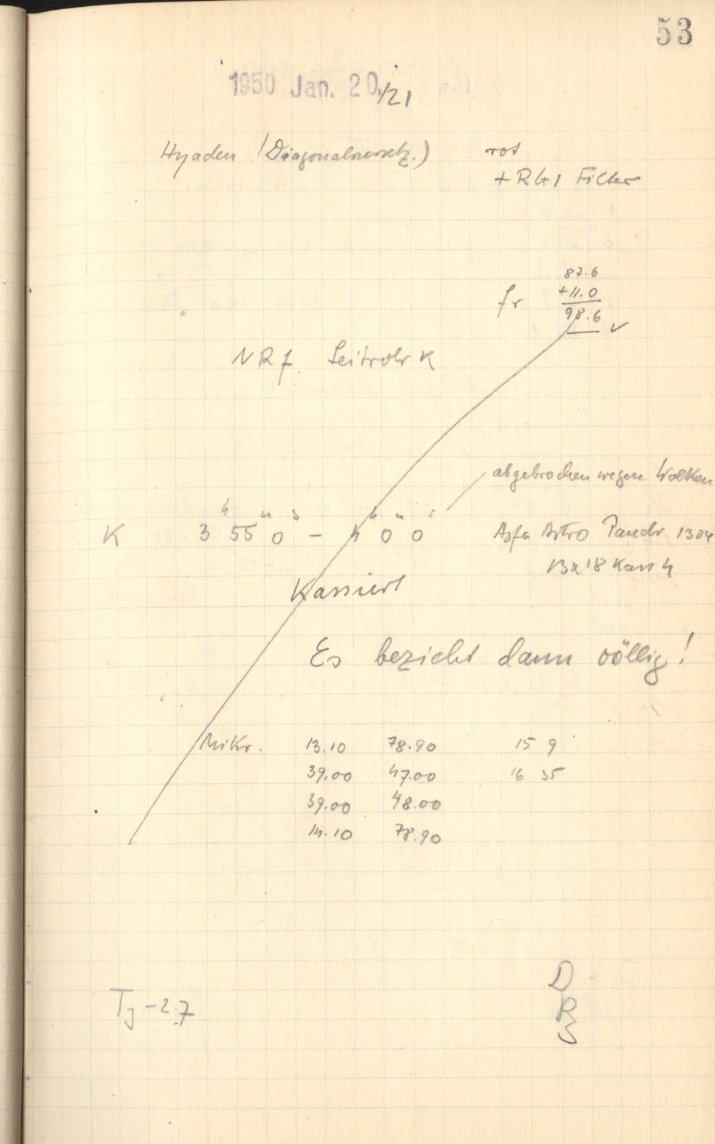 53
1950 Jan. 20./21
Hyaden (Diagonalversetz.) rot
+ RG1 Filter
87.6
fr +11.0
98.6 ✓
NRf. Leitrohr K
abgebrochen wegen Wolken
K 3h 55m 0s – 4h 0m 0s Agfa Astro Panchr 1304
13x18 Kass 4
Kassiert
Es bezieht dann völlig!
Mikr. 13.10 78.90 15 9
39.00 47.00 16 35
39.00 48.00
14.10 78.90
Tj -2.7